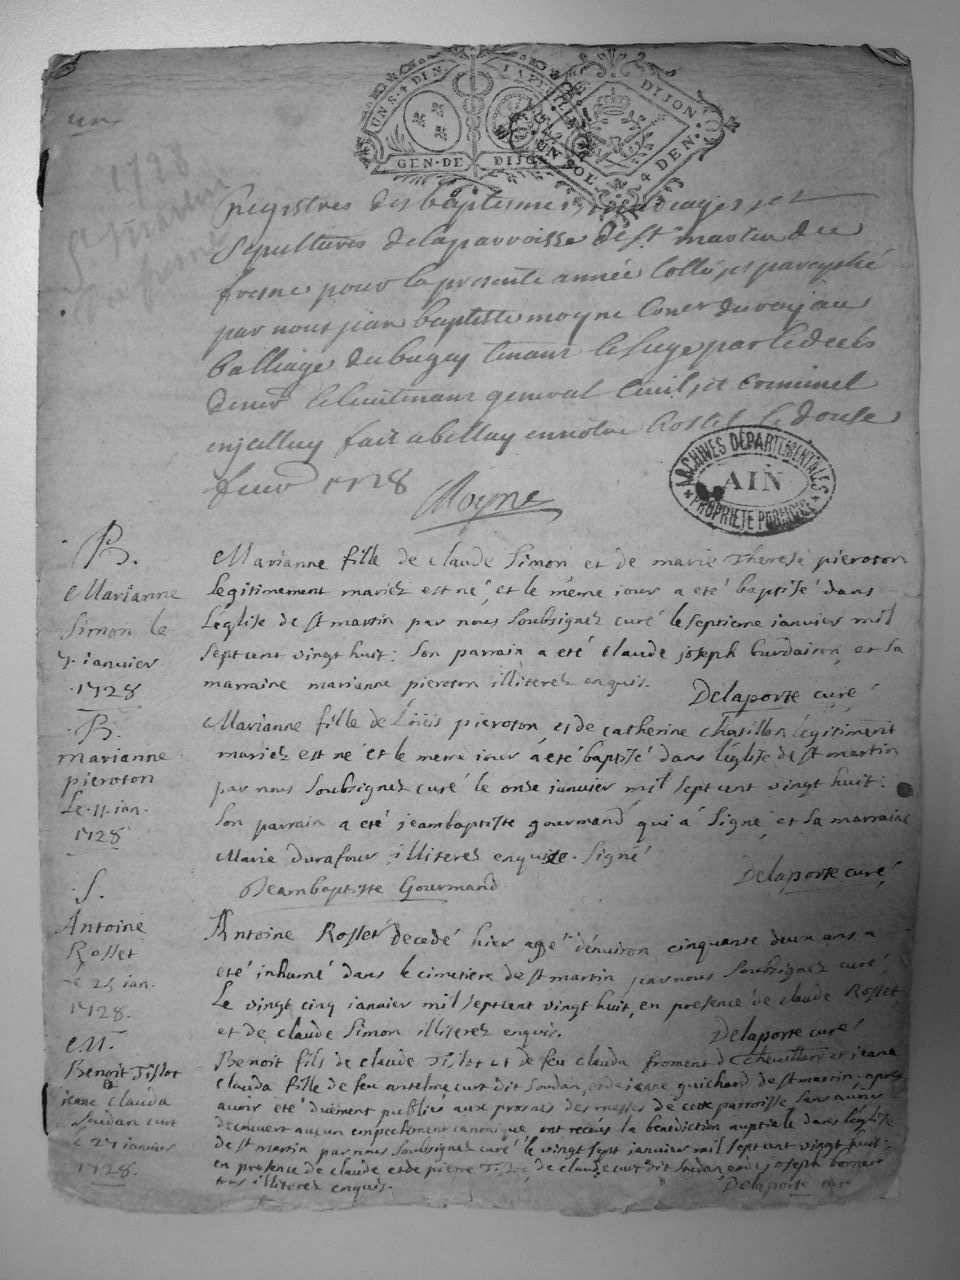 un
1728
St Martin
du fresne
UN S. 4 DEN.
GEN. DE DIJON
DIJON
UN SOL. 4 DEN.
Registres des baptesmes mariages et
Sepultures de la parroisse de St martin du
fresne pour la presente année Cotté, et paraphé
par nous jean baptiste moyne Coner du roy au
balliage du bugey tenant le siege par le deceds
de mr le lieutenant general Civil, et Criminel
en jcelluy fait a belley en notre hostel le douse
1728
Moyne
ARCHIVES DÉPARTEMENTALES
AIN
PROPRIÉTÉ PUBLIQUE
B.
Marianne
Simon le
7 ianvier
1728
Marianne fille de Claude Simon et de marie Therese pieroton
legitimement mariez est né, et le même iour a eté baptisé dans
l'église de st martin par nous soubsignez curé le septieme ianvier mil
sept cent vingt huit: son parrain a eté claude joseph burdairon, et sa
marraine marianne pieroton illiterez enquis. Delaporte curé
B.
marianne
pieroton
Le 11 ian.
1728
Marianne fille de Loüis pieroton, et de catherine Chatillon légitimemt
mariez est né et le meme iour a eté baptisé dans l'église de st martin
par nous soubsignez curé le onse ianvier mil sept cent vingt huit:
son parrain a eté jeambaptiste gourmand qui a signé, et sa marraine
Marie durafour illiterez enquise. Signé
Jeambaptiste Gourmand Delaporte curé
S.
Antoine
Rosset
le 25 ian.
1728.
Antoine Rosset decedé hier agé d'environ cinquante deux ans a
eté inhumé dans le cimetière de st martin par nous soubsignez curé,
Le vingt cinq ianvier mil sept cent vingt huit, en presence de claude Rosset
et de claude Simon illiterez enquis. Delaporte curé
M.
Benoit Tissot
&
jeane Clauda
Soudan curt
le 27 ianvier
1728.
Benoit fils de claude Tissot et de feu clauda froment d et jeane
clauda fille de feu anselme curt dit Soudan, et de jeane guichard de st martin apres
avoir été duëment publiés aux prosnes des messes de cette parroisse sans avoir
decouvert aucun empechement canonique ont receus la benediction nuptiale dans l'église
de st martin par nous soubsignez curé le vingt sept ianvier mil sept cent vingt huit:
en presence de claude et de pierre Tissot, de claude curt dit Soudan, et de joseph
tous illiterez enquis. Delaporte curé